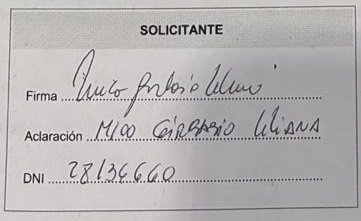 SOLICITANTE
Firma
Aclaración MIOO GERBASIO LILIANA
DNI 28134660